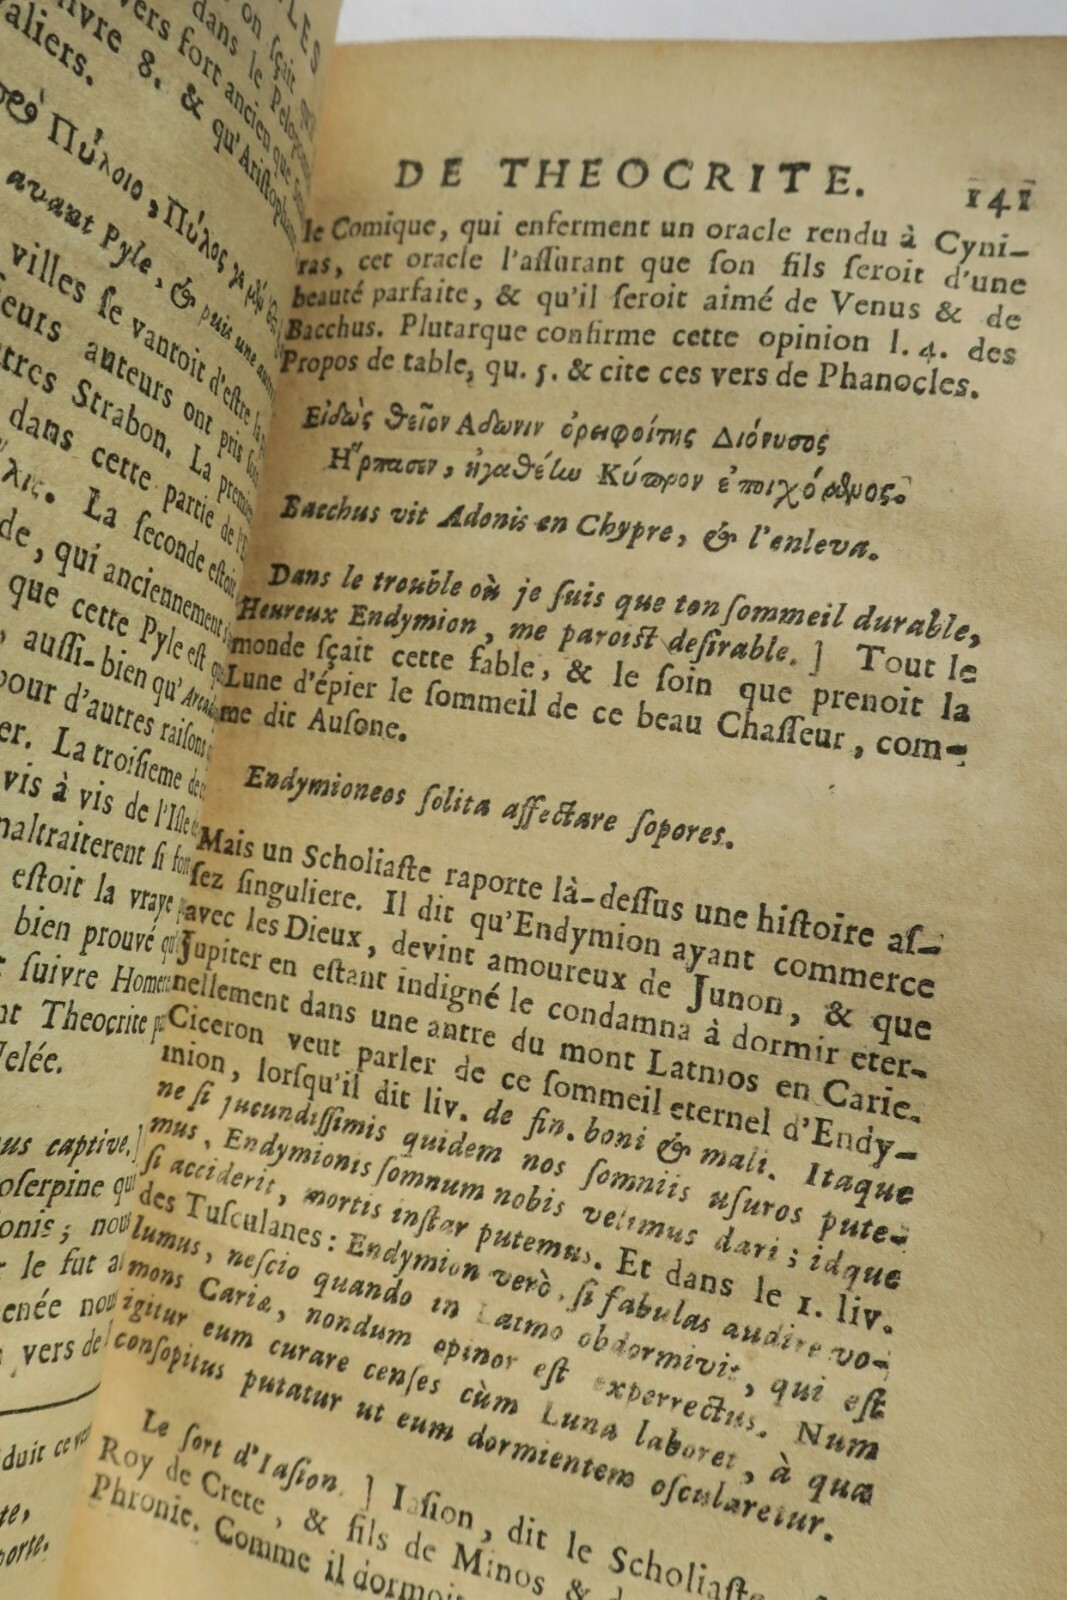 LES
on sçait
livre dans le Pelopon
valiers. vers fort ancien que
8. & qu'Aristophan
Πύλοιο, Πύλος
avant Pyle, & puis une autre
villes se vantoit d'estre la
sieurs auteurs ont pris
tres Strabon. La premie
dans cette partie de l'E
La seconde estoit
de, qui anciennement
que cette Pyle est
, aussi-bien qu'Arcad
pour d'autres raisons
er. La troisieme de
vis à vis de l'Isle
maltraiterent si fort
estoit la vraye
bien prouvé qu
suivre Homer
nt Theocrite
Nelée.
us captive.]
oserpine qui
onis; nous
le fut a
enée nou
vers de
duit ce ver
te,
porte.
DE THEOCRITE. 141
le Comique, qui enferment un oracle rendu à Cyni-
ras, cet oracle l'assurant que son fils seroit d'une
beauté parfaite, & qu'il seroit aimé de Venus & de
Bacchus. Plutarque confirme cette opinion l. 4. des
Propos de table, qu. 5. & cite ces vers de Phanocles.
Εἰδὼς θεῖον Αδωνιν ὀρειφοίτης Διόνυσος
Ηρπασεν, ἠγαθέην Κύπρον ἐποιχόμενος.
Bacchus vit Adonis en Chypre, & l'enleva.
Dans le trouble où je suis que ton sommeil durable,
Heureux Endymion, me paroist desirable. ] Tout le
monde sçait cette fable, & le soin que prenoit la
Lune d'épier le sommeil de ce beau Chasseur, com-
me dit Ausone.
Endymioneos solita affectare sopores.
Mais un Scholiaste raporte là-dessus une histoire as-
sez singuliere. Il dit qu'Endymion ayant commerce
avec les Dieux, devint amoureux de Junon, & que
Jupiter en estant indigné le condamna à dormir eter-
nellement dans une antre du mont Latmos en Carie.
Ciceron veut parler de ce sommeil eternel d'Endy-
mion, lorsqu'il dit liv. de fin. boni & mali. Itaque
ne si jucundissimis quidem nos somniis usuros pute-
mus, Endymionis somnum nobis velimus dari; idque
si acciderit, mortis instar putemus. Et dans le 1. liv.
des Tusculanes: Endymion verò, si fabulas audire vo-
lumus, nescio quando in Latmo obdormivit, qui est
mons Cariæ, nondum opinor est experrectus. Num
igitur eum curare censes cùm Luna laboret, à qua
consopitus putatur ut eum dormientem oscularetur.
Le sort d'Iasion. ] Iasion, dit le Scholiaste
Roy de Crete, & fils de Minos &
Phronie. Comme il dormoit